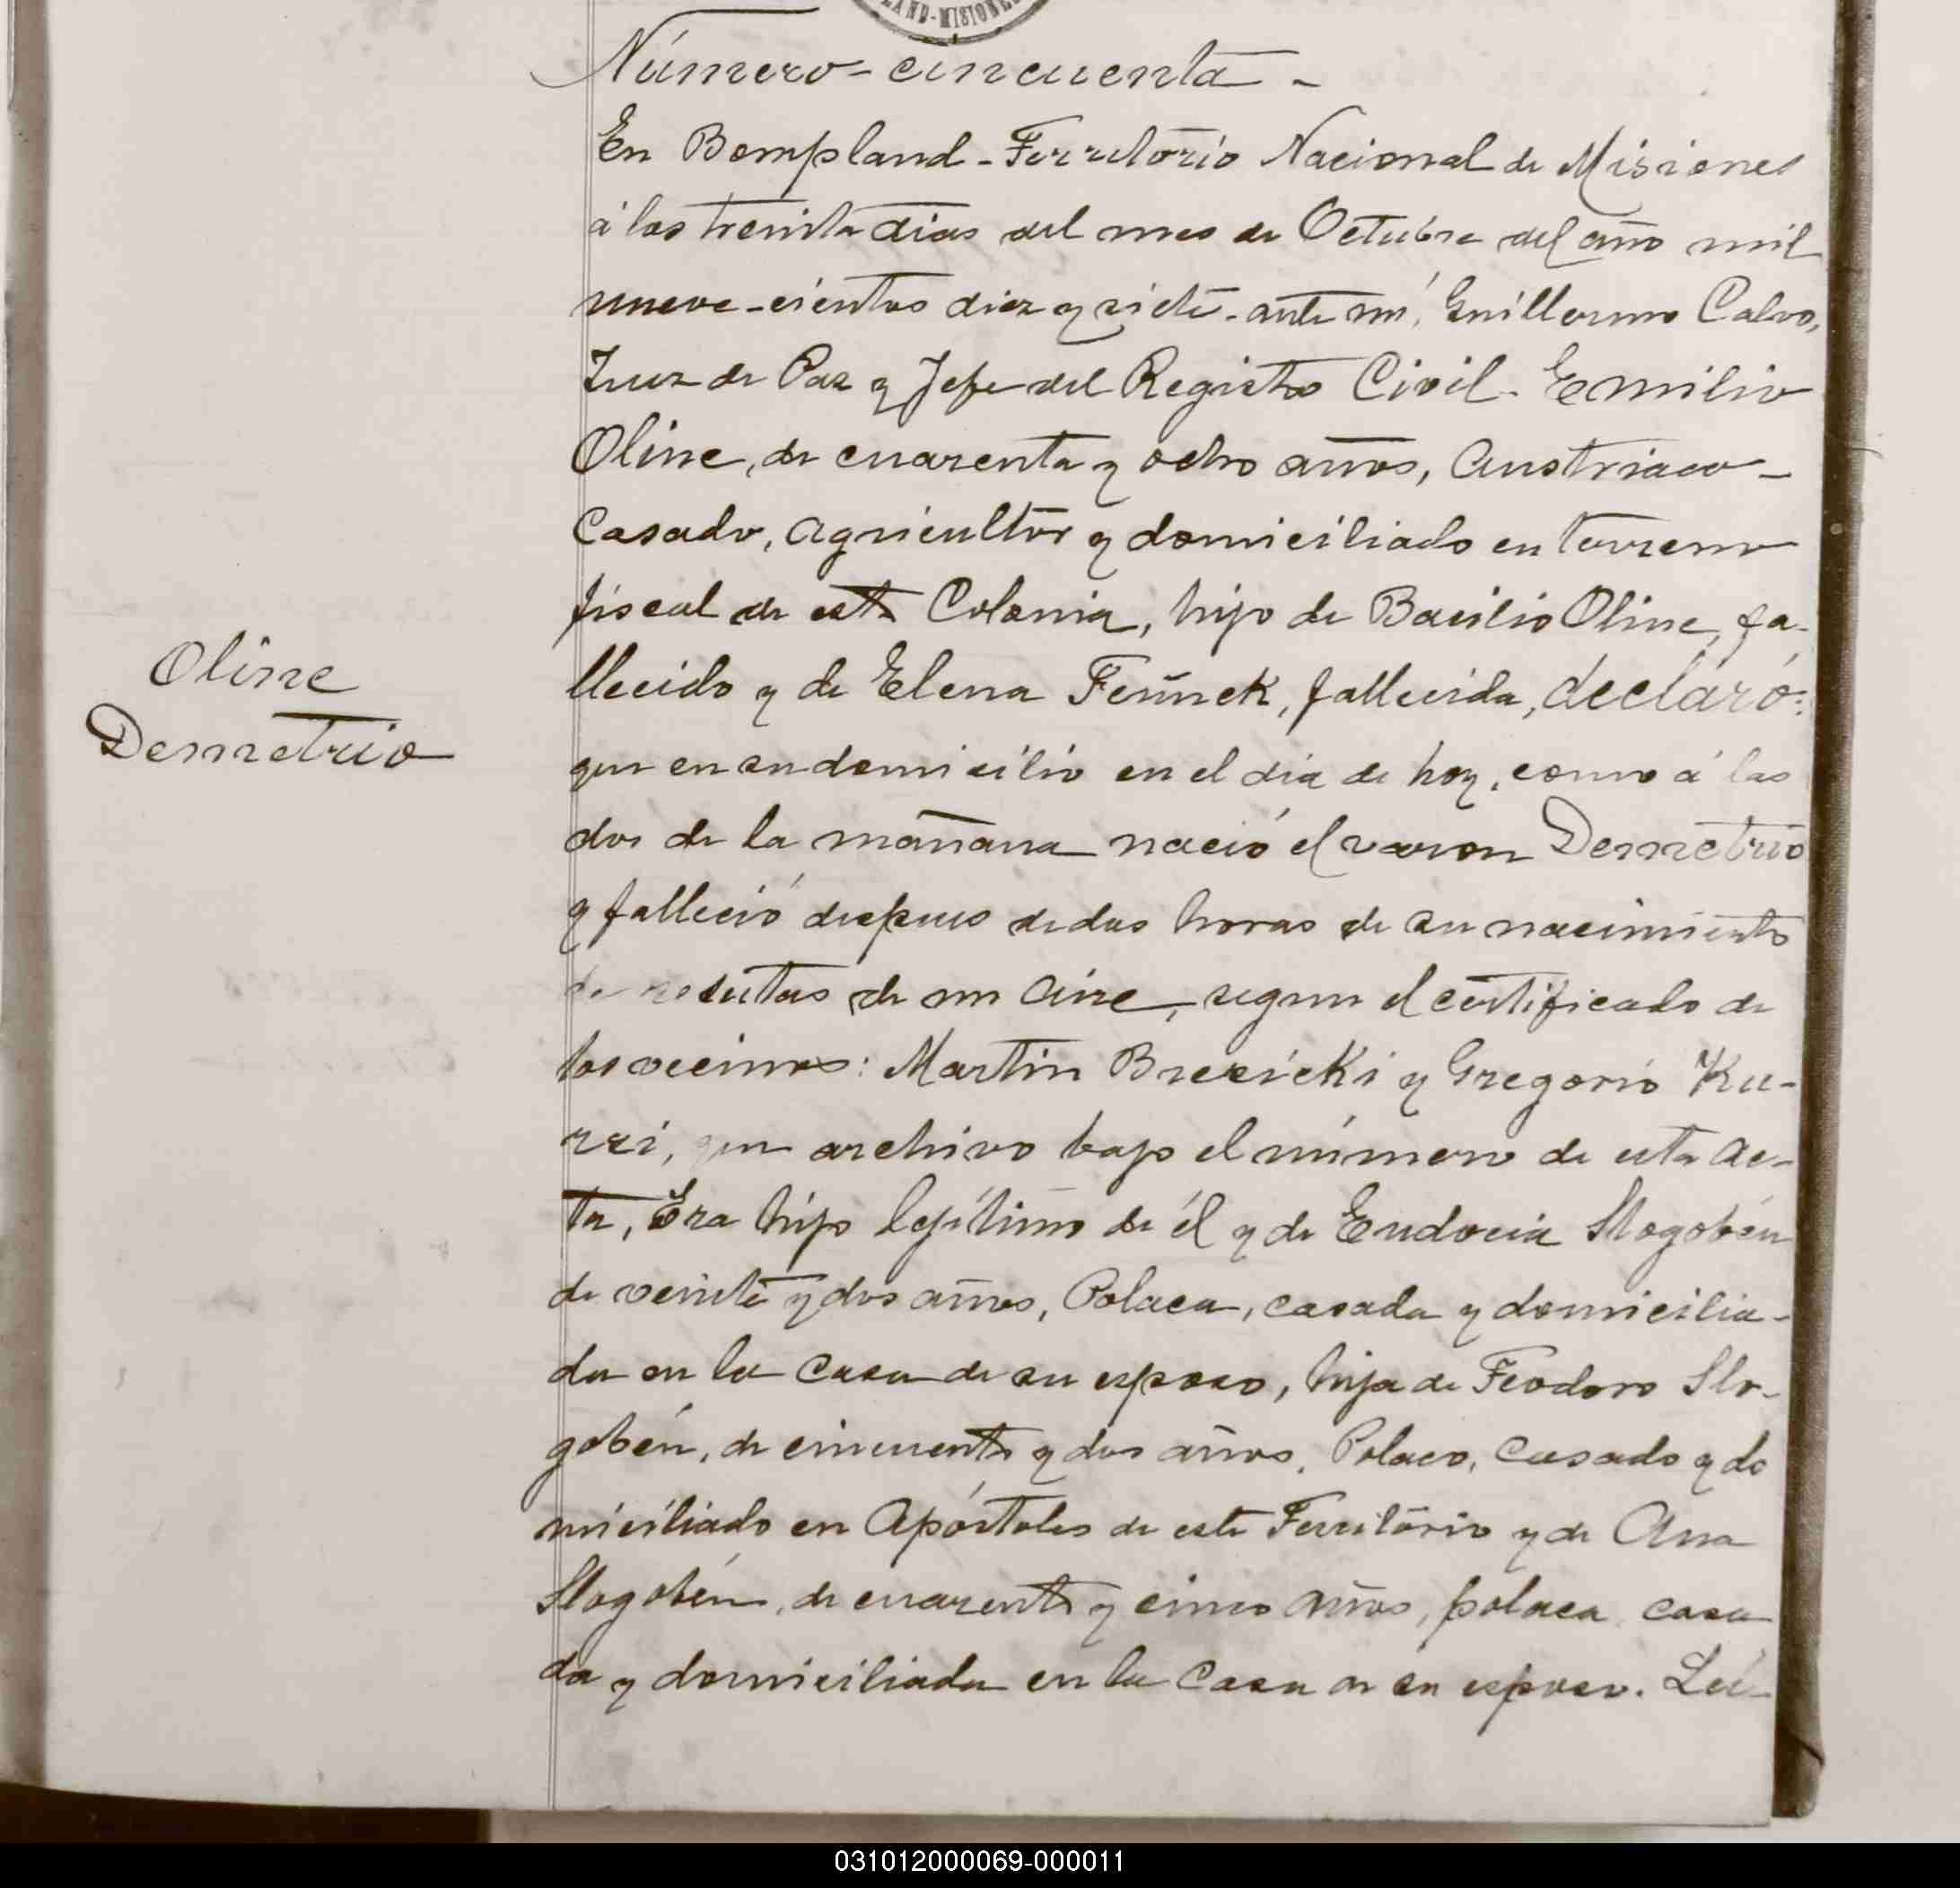 LAND-MISIONES
Número-cincuenta-
En Bompland-Territorio Nacional de Misiones
á los treinta dias del mes de Octubre del año mil
nueve-cientos diez y siete-ante mí, Guillermo Calvo,
Juez de Paz y Jefe del Registro Civil-Emilio
Oline, de cuarenta y ocho años, Austriaco-
Casado, agricultor y domiciliado en terreno
fiscal de esta Colonia, hijo de Basilio Oline, fa-
Oline
Demetrio
llecido y de Elena, fallecida, declaró:
que en su domicilio en el dia de hoy, como á las
dos de la mañana nació el varon Demetrio
y falleció despues de dos horas de su nacimiento
de resultas de un aire, segun el certificado de
los vecinos: Martin Brezicki y Gregorio Ku-
rzi, que archivo bajo el número de esta ac-
ta, Era hijo legítimo de él y de Eudocia Slogobén
de veinte y dos años, Polaca, casada y domicilia-
da en la casa de su esposo, hija de Feodoro Slo-
gobén, de cincuenta y dos años, Polaco, casado y do
miciliado en Apóstoles de este Territorio y de Ana
Slogobén, de cuarenta y cinco años, polaca, casa
da y domiciliada en la casa de su esposo. Leí-
031012000069-000011